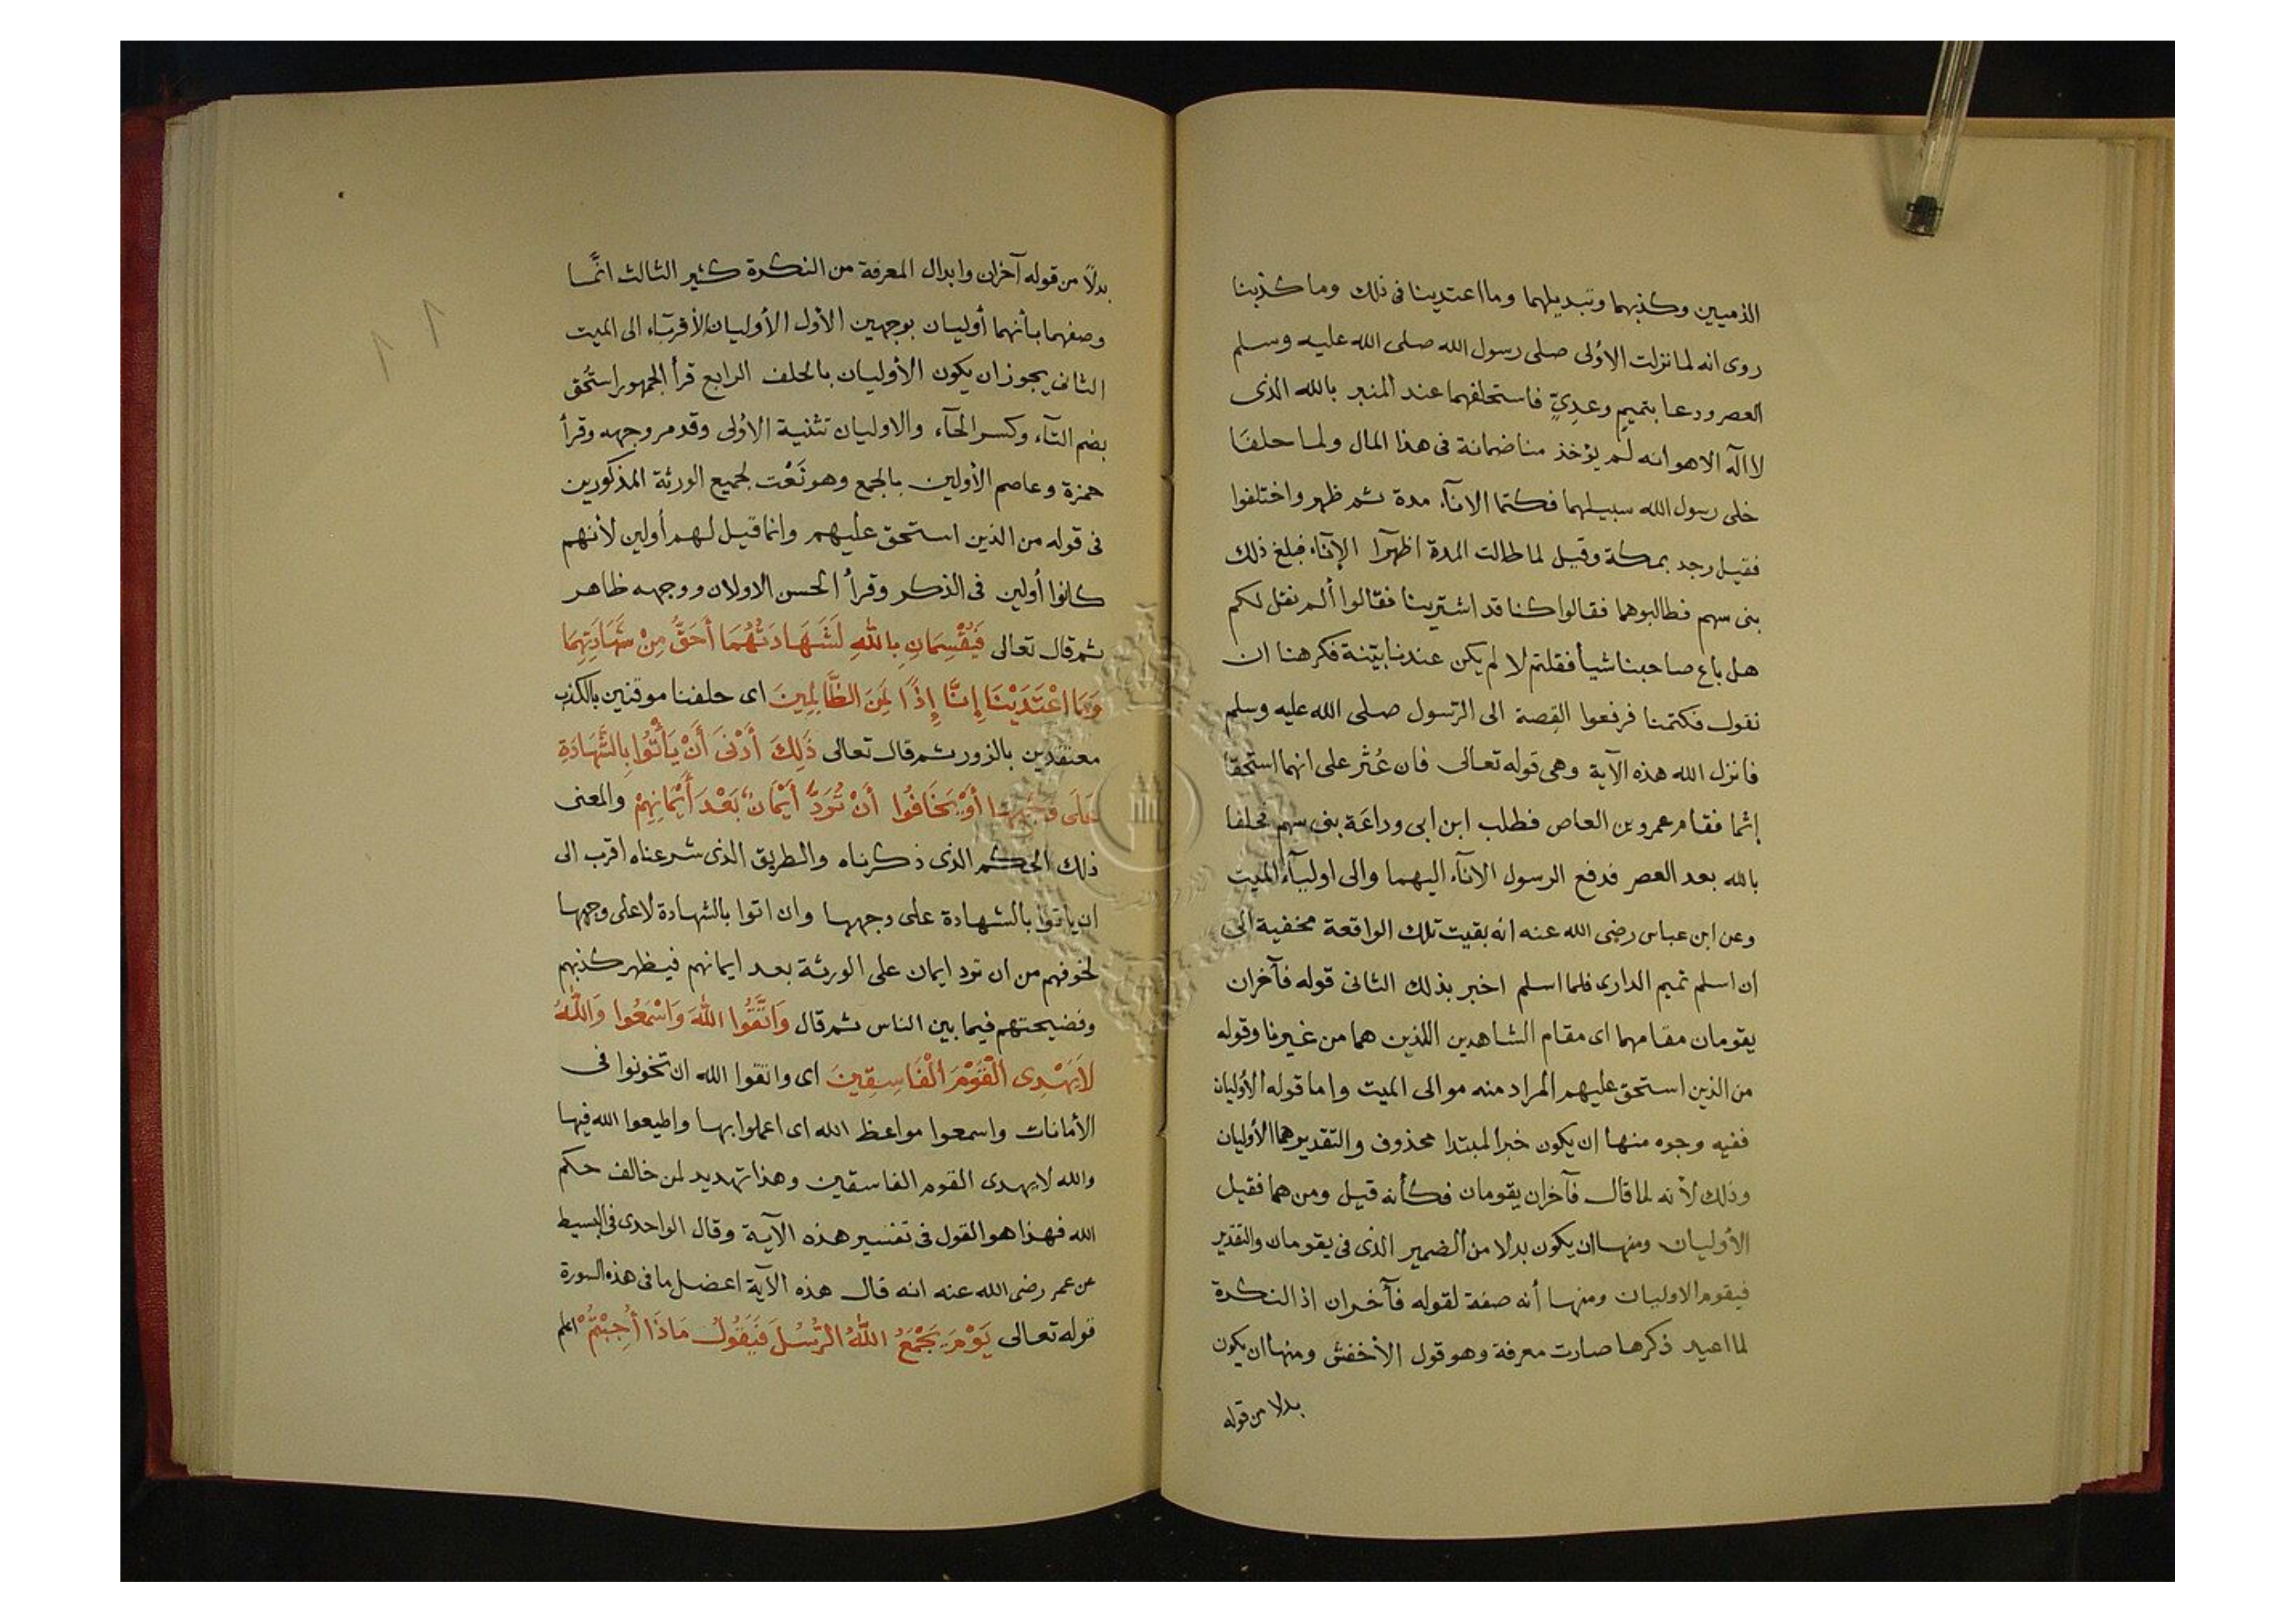 الذميين وكذبهما وتبديلهما وما اعتدينا فى ذلك وما كذبنا
روى انه لما نزلت الاولى صلى رسول الله صلى الله عليه وسلم
العصر ودعا بتميم وعدي فاستحلفهما عند المنبر بالله الذى
لا اله الا هو انه لم يؤخذ منا ضمانة فى هذا المال ولما حلفا
خلى رسول الله سبيلهما فكتما الانآء مدة ثم ظهر واختلفوا
فقيل وجد بمكة وقيل لما طالت المدة اظهرا الإنآء فبلغ ذلك
بنى سهم فطالبوهما فقالوا كنا قد اشترينا فقالوا ألم نقل لكم
هل باع صاحبنا شيأ فقلتم لا لم يكن عندنا بينة فكرهنا ان
نقول فكتمنا فرفعوا القصة الى الرسول صلى الله عليه وسلم
فانزل الله هذه الآية وهى قوله تعالى فان عُثر على انهما استحقا
إثما فقام عمرو بن العاص فطلب ابن ابى وداعة بنى سهم فحلفا
بالله بعد العصر فدفع الرسول الانآء اليهما والى اوليآء الميت
وعن ابن عباس رضى الله عنه انه بقيت تلك الواقعة مخفية الى
ان اسلم تميم الدارى فلما اسلم اخبر بذلك الثانى قوله فآخران
يقومان مقامهما اى مقام الشاهدين اللذين هما من غيرنا وقوله
من الذين استحق عليهم المراد منه موالى الميت واما قوله الأوليان
ففيه وجوه منها ان يكون خبر المبتدا محذوف والتقدير هما الأوليان
وذلك لأنه لما قال فآخران يقومان فكأنه قيل ومن هما فقيل
الأوليان ومنها ان يكون بدلا من الضمير الذى فى يقومان والتقدير
فيقوم الاوليان ومنها أنه صفة لقوله فآخران اذ النكرة
لما اعيد ذكرها صارت معرفة وهو قول الأخفش ومنها ان يكون
بدلا من قوله
بدلًا من قوله آخران وابدال المعرفة من النكرة كثير الثالث انَّما
وصفهما بأنهما أوليان بوجهين الأول الأوليان الأقربآء الى الميت
الثانى يجوز ان يكون الأوليان بالحلف الرابع قرأ الجمهور استُحق
بضم التآء وكسر الحآء والاوليان تثنية الاولى وقد مر وجهه وقرأ
حمزة وعاصم الأولين بالجمع وهو نَعْت لجميع الورثة المذكورين
فى قوله من الذين استحق عليهم وانما قيل لهم أولين لأنهم
كانوا أولين فى الذكر وقرأ الحسن الاولان ووجهه ظاهر
ثم قال تعالى فَيُقْسِمَانِ بِاللهِ لَشَهَادَتُهُمَا أَحَقُّ مِنْ شَهَادَتِهِمَا
وَمَا اعْتَدَيْنَا إِنَّا إِذًا لَمِنَ الظَّالِمِينَ اى حلفنا موقنين بالكذب
معتقدين بالزور ثم قال تعالى ذَلِكَ أَدْنَى أَنْ يَأْتُوا بِالشَّهَادَةِ
عَلَى وَجْهِهَا أَوْ يَخَافُوا أَنْ تُرَدَّ أَيْمَانٌ بَعْدَ أَيْمَانِهِمْ والمعنى
ذلك الحكم الذى ذكرناه والطريق الذى شرعناه اقرب الى
ان ياتوا بالشهادة على وجهها وان اتوا بالشهادة لا على وجهها
لخوفهم من ان ترد ايمان على الورثة بعد ايمانهم فيظهر كذبهم
وفضيحتهم فيما بين الناس ثم قال وَاتَّقُوا اللهَ وَاسْمَعُوا وَاللهُ
لَا يَهْدِى الْقَوْمَ الْفَاسِقِينَ اى واتقوا الله ان تخونوا فى
الأمانات واسمعوا مواعظ الله اى اعملوا بها واطيعوا الله فيها
والله لا يهدى القوم الفاسقين وهذا تهديد لمن خالف حكم
الله فهذا هو القول فى تفسير هذه الآية وقال الواحدى فى البسيط
عن عمر رضى الله عنه انه قال هذه الآية اعضل ما فى هذه السورة
قوله تعالى يَوْمَ يَجْمَعُ اللهُ الرُّسُلَ فَيَقُولُ مَاذَا أُجِبْتُمْ اعلم
١١